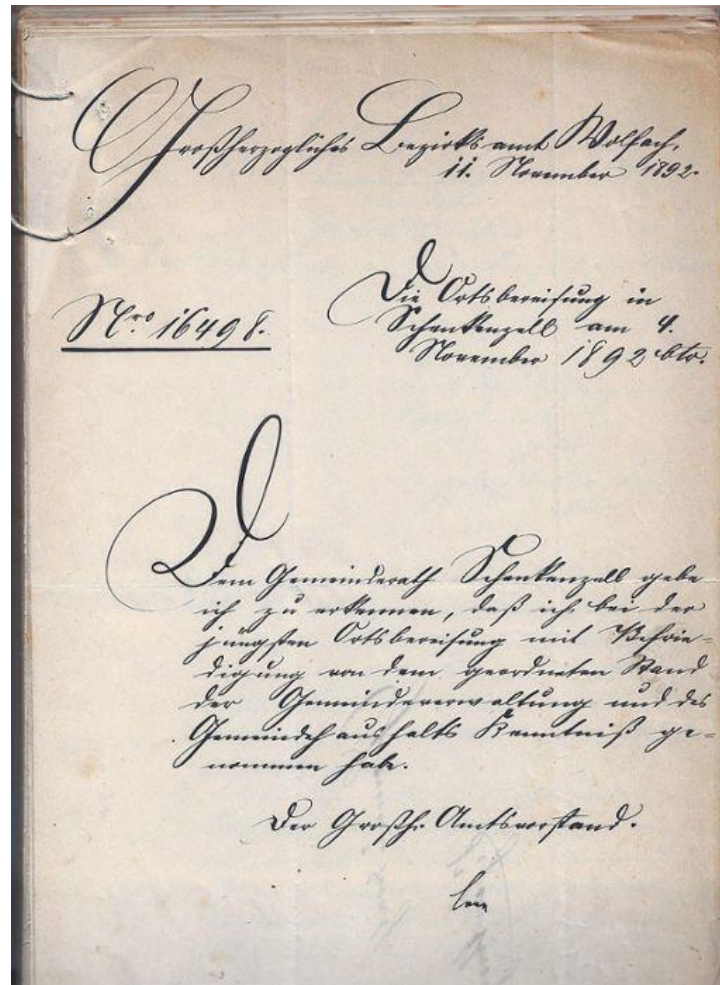 Großherzogliches Bezirksamt Wolfach,
11. November 1892.
Nro 16498.
Die Ortsbereisung in
Schenkenzell am 4.
November 1892 btr.
Dem Gemeinderath Schenkenzell gebe
ich zu erkennen, daß ich bei der
jüngsten Ortsbereisung mit Befrie-
digung von dem geordneten Stand
der Gemeindeverwaltung und des
Gemeindehaushalts Kenntniß ge-
nommen habe.
Der Großh. Amtsvorstand.